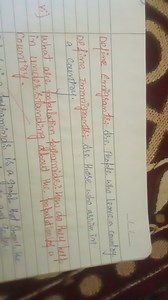 Define Emigrants the People who leave a country
Define Immigrants the those who arrive in
a country.
x) What are population pyramids? How do they help
in understanding about the population of a
country.
is a graph that shows the